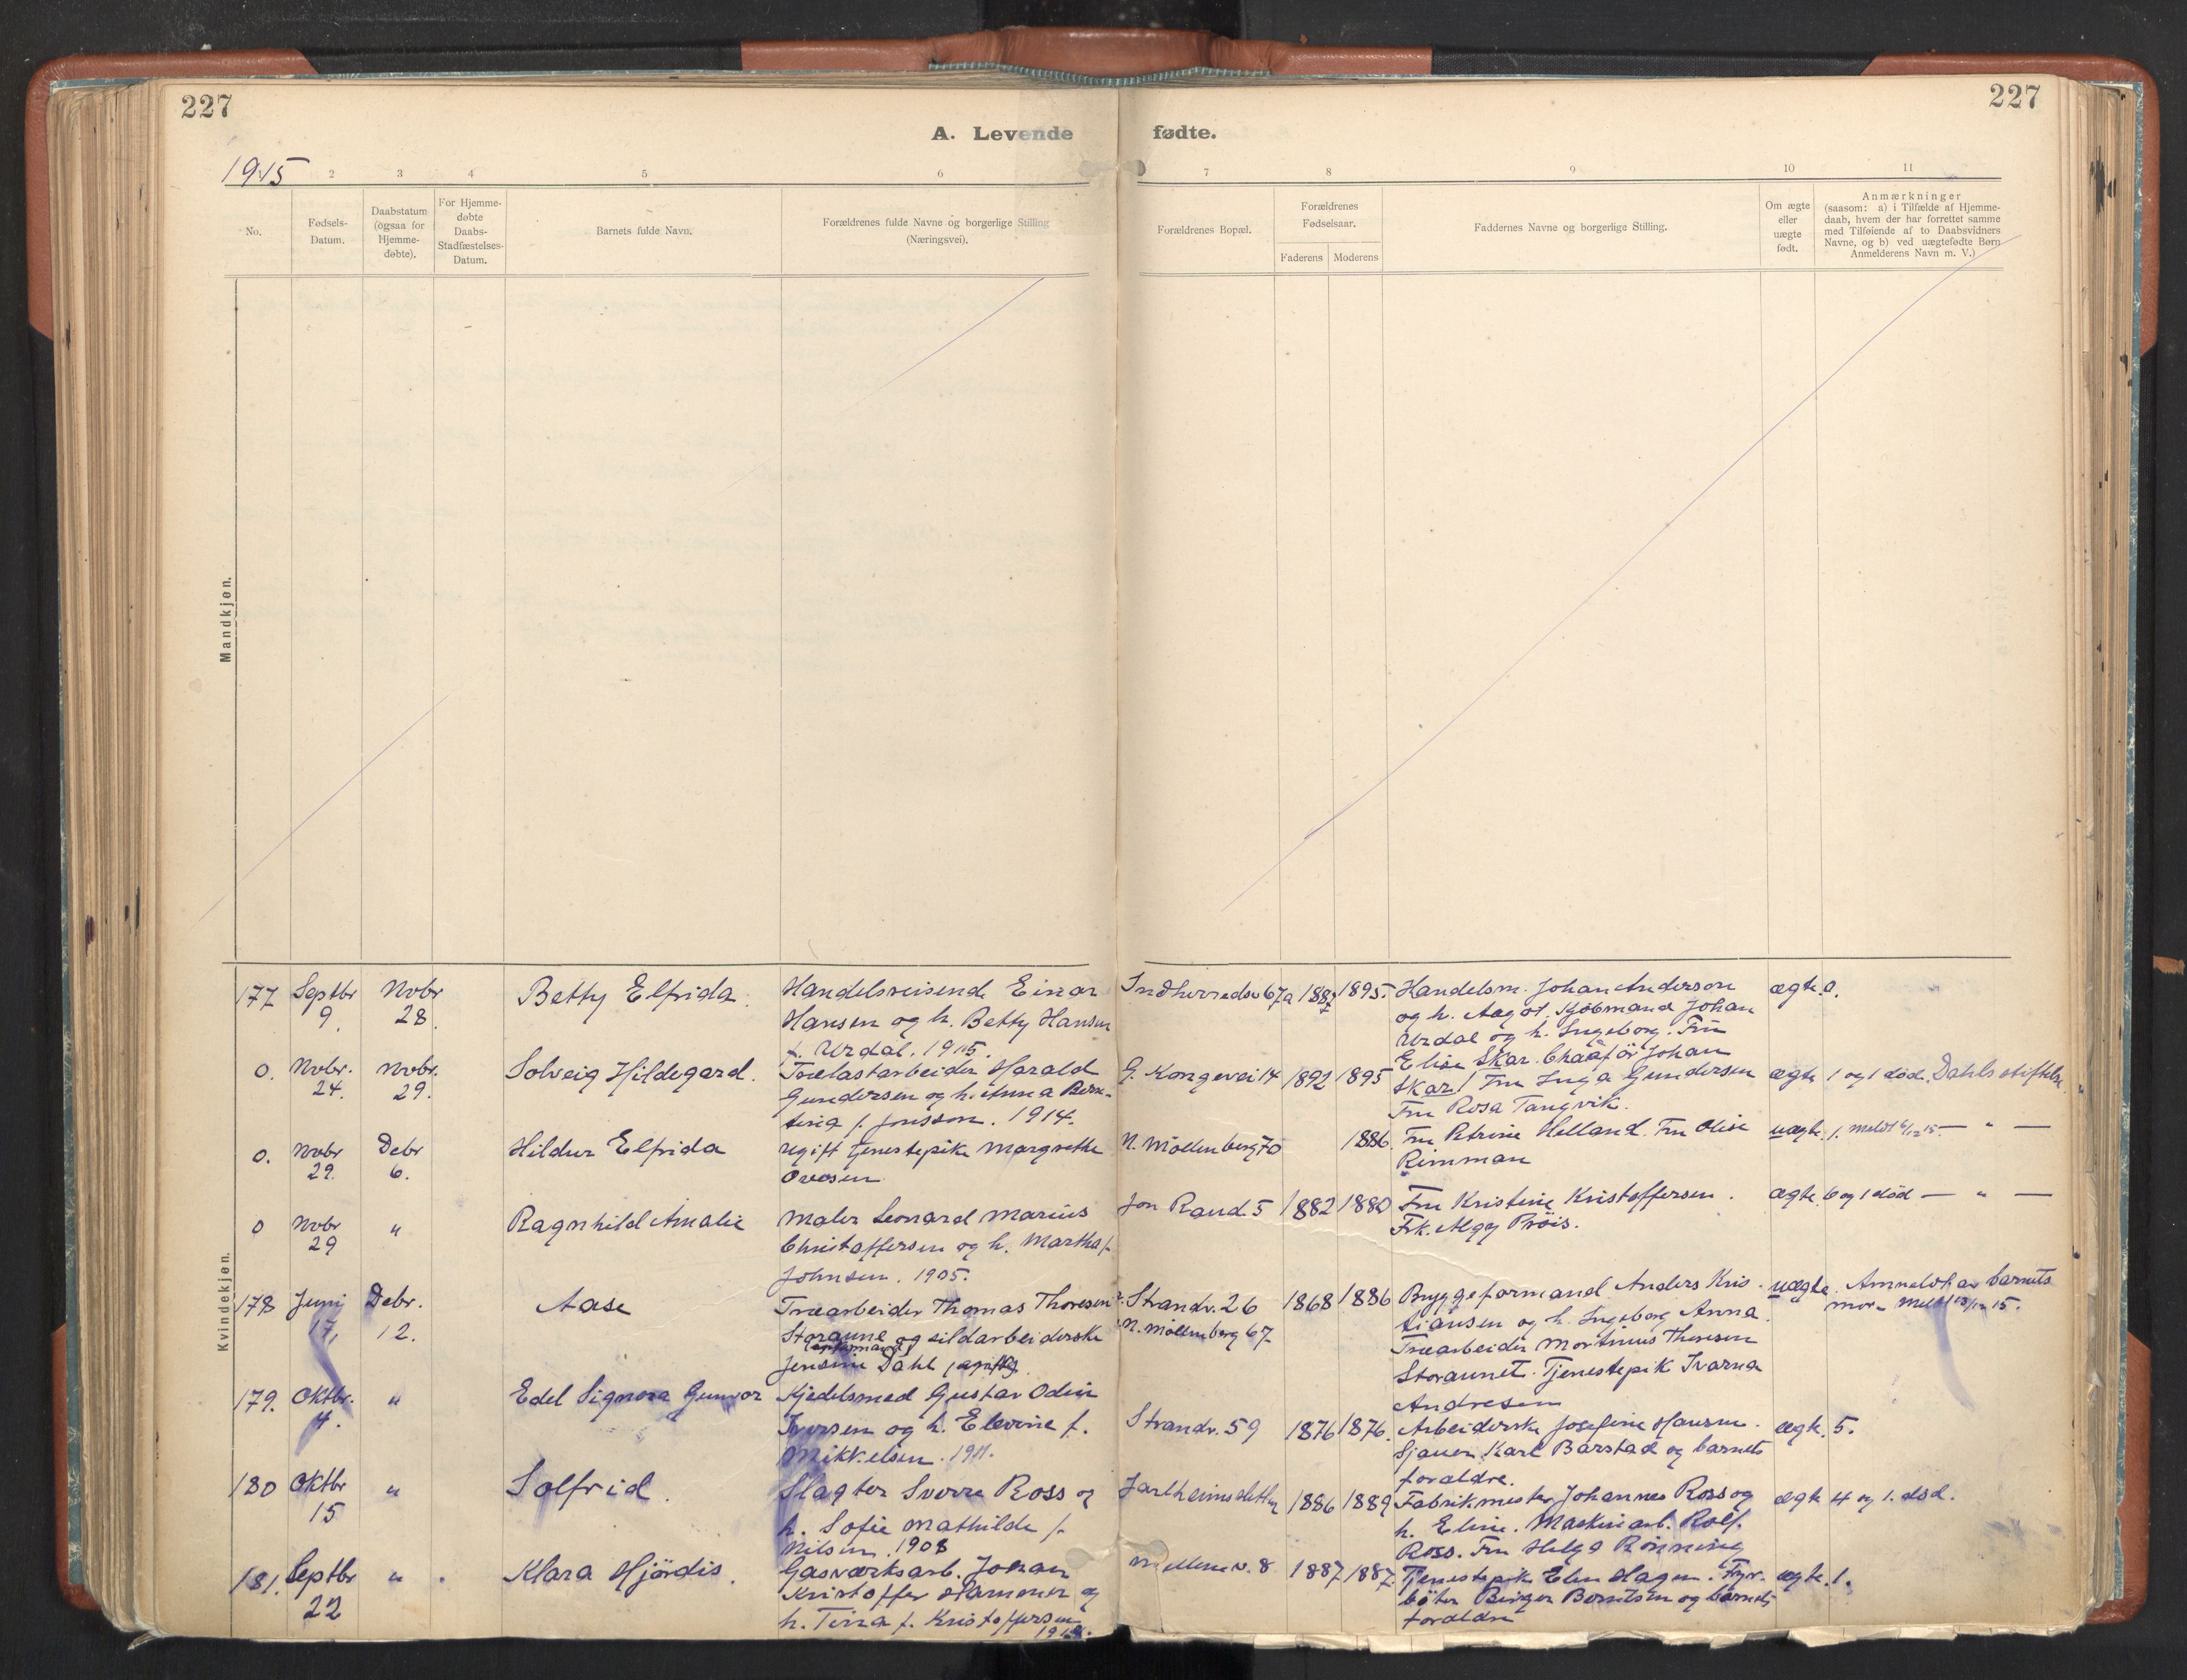 227
227
A. Levende fødte.
1915
2 3 4 5 6 7 8 9 10 11
No.
Fødsels-
Datum.
Daabstatum
(ogsaa for
Hjemme-
døbte).
For Hjemme-
døbte
Daabs-
Stadfæstelses-
Datum.
Barnets fulde Navn.
Forældrenes fulde Navne og borgerlige Stilling
(Næringsvei).
Forældrenes Bopæl.
Forældrenes
Fødselsaar.
Faderens
Moderens
Faddernes Navne og borgerlige Stilling.
Om ægte
eller
uægte
født.
Anmærkninger
(saasom: a) i Tilfælde af Hjemme-
daab, hvem der har forrettet samme
med Tilføiende af to Daabsvidners
Navne, og b) ved uægtefødte Børn
Anmelderens Navn m. V.)
Mandkjøn.
Kvindekjøn.
177
Septbr
9.
Nobr
28.
Betty Elfrida.
Handelsreisende Einar
Hansen og h. Betty Hansen
f. Urdal. 1915.
Indherredsv 67a
1887
1895.
Handelsm. Johan Anderson
og h. Aagot. Kjøbmand Johan
Urdal og h. Ingeborg. Fru
Elise Skar. Chaafør Johan
Skar!
ægte.
0.
0.
Nobr.
24.
Nobr.
29.
Solveig Hildegard.
Trælastarbeider Harald
Gundersen og h. Anna Bern-
tina f. Jonsson. 1914.
G. Kongevei 14
1892
1895
Fru Inga Gundersen
Fru Rosa Tangvik.
ægte
1 og 1 død. Dahls stiftelse
0.
Nobr
29.
Debr
6.
Hildur Elfrida
Ugift tjenestepike Margrethe
Ovesen
N. Møllenberg 70
1886.
Fru Petrine Helland. Fru Olise
Rimman
uægte.
1. meldt 6/12 15. — " —
0
Nobr
29
"
Ragnhild Amalie
Maler Leonard Marius
Christoffersen og h. Martha f.
Johnsen. 1905.
Jon Raud. 5
1882
1880
Fru Kristine Kristoffersen.
Frk. Aggy Prøis.
ægte.
6 og 1 død — " —
178
Juni
17,
Debr.
12.
Aase
Træarbeider Thomas Thoresen
Storaune og sildarbeiderske
Jensine Dahl
Strandv. 26
N. Møllenberg 67
1868
1886
Bryggeformand Anders Kris-
tiansen og h. Ingeborg Anna.
Træarbeider Mortinus Thoresen
Storaunet. Tjenestepik Ivarna
Andresen
uægte.
Anmeldt av barnets
mor. Meldt 13/12 15.
179.
Oktbr.
4.
"
Edel Signora Gunvor
Kjedelsmed Gustav Odin
Iversen og h. Elevine f.
Mikkelsen. 1911.
Strandv. 59
1876
1876.
Arbeiderske Josefine Hansen.
Sjauer Karl Barstad og barnets
forældre.
ægte.
5.
180
Oktbr
15
"
Solfrid.
Slagter Sverre Ross og
h. Sofie Mathilde f.
Nilsen. 1908
1886
1889
Fabrikmester Johannes Ross og
h. Eline. Maskinarb. Rolf
Ross. Fru Helga Rønning
ægte
4 og 1. død.
181.
Septbr
22
"
Klara Hjørdis.
Gasværksarb. Johan
Kristoffer Hammer og
h. Tina f. Kristoffersen
Mellemv. 8
1887
1887.
Tjenestepik Elen Hagen. Fyr-
bøter Birger Berntsen og barnets
forældre
ægte.
1.